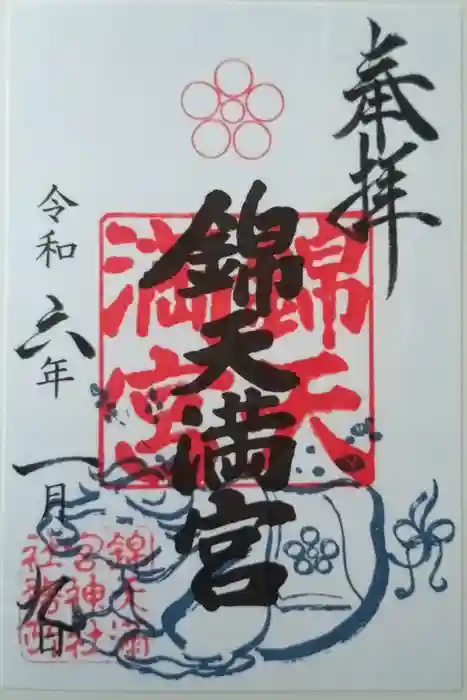 奉拝
錦天満宮
錦天
満宮
令和六年一月九日
錦天満
宮神社